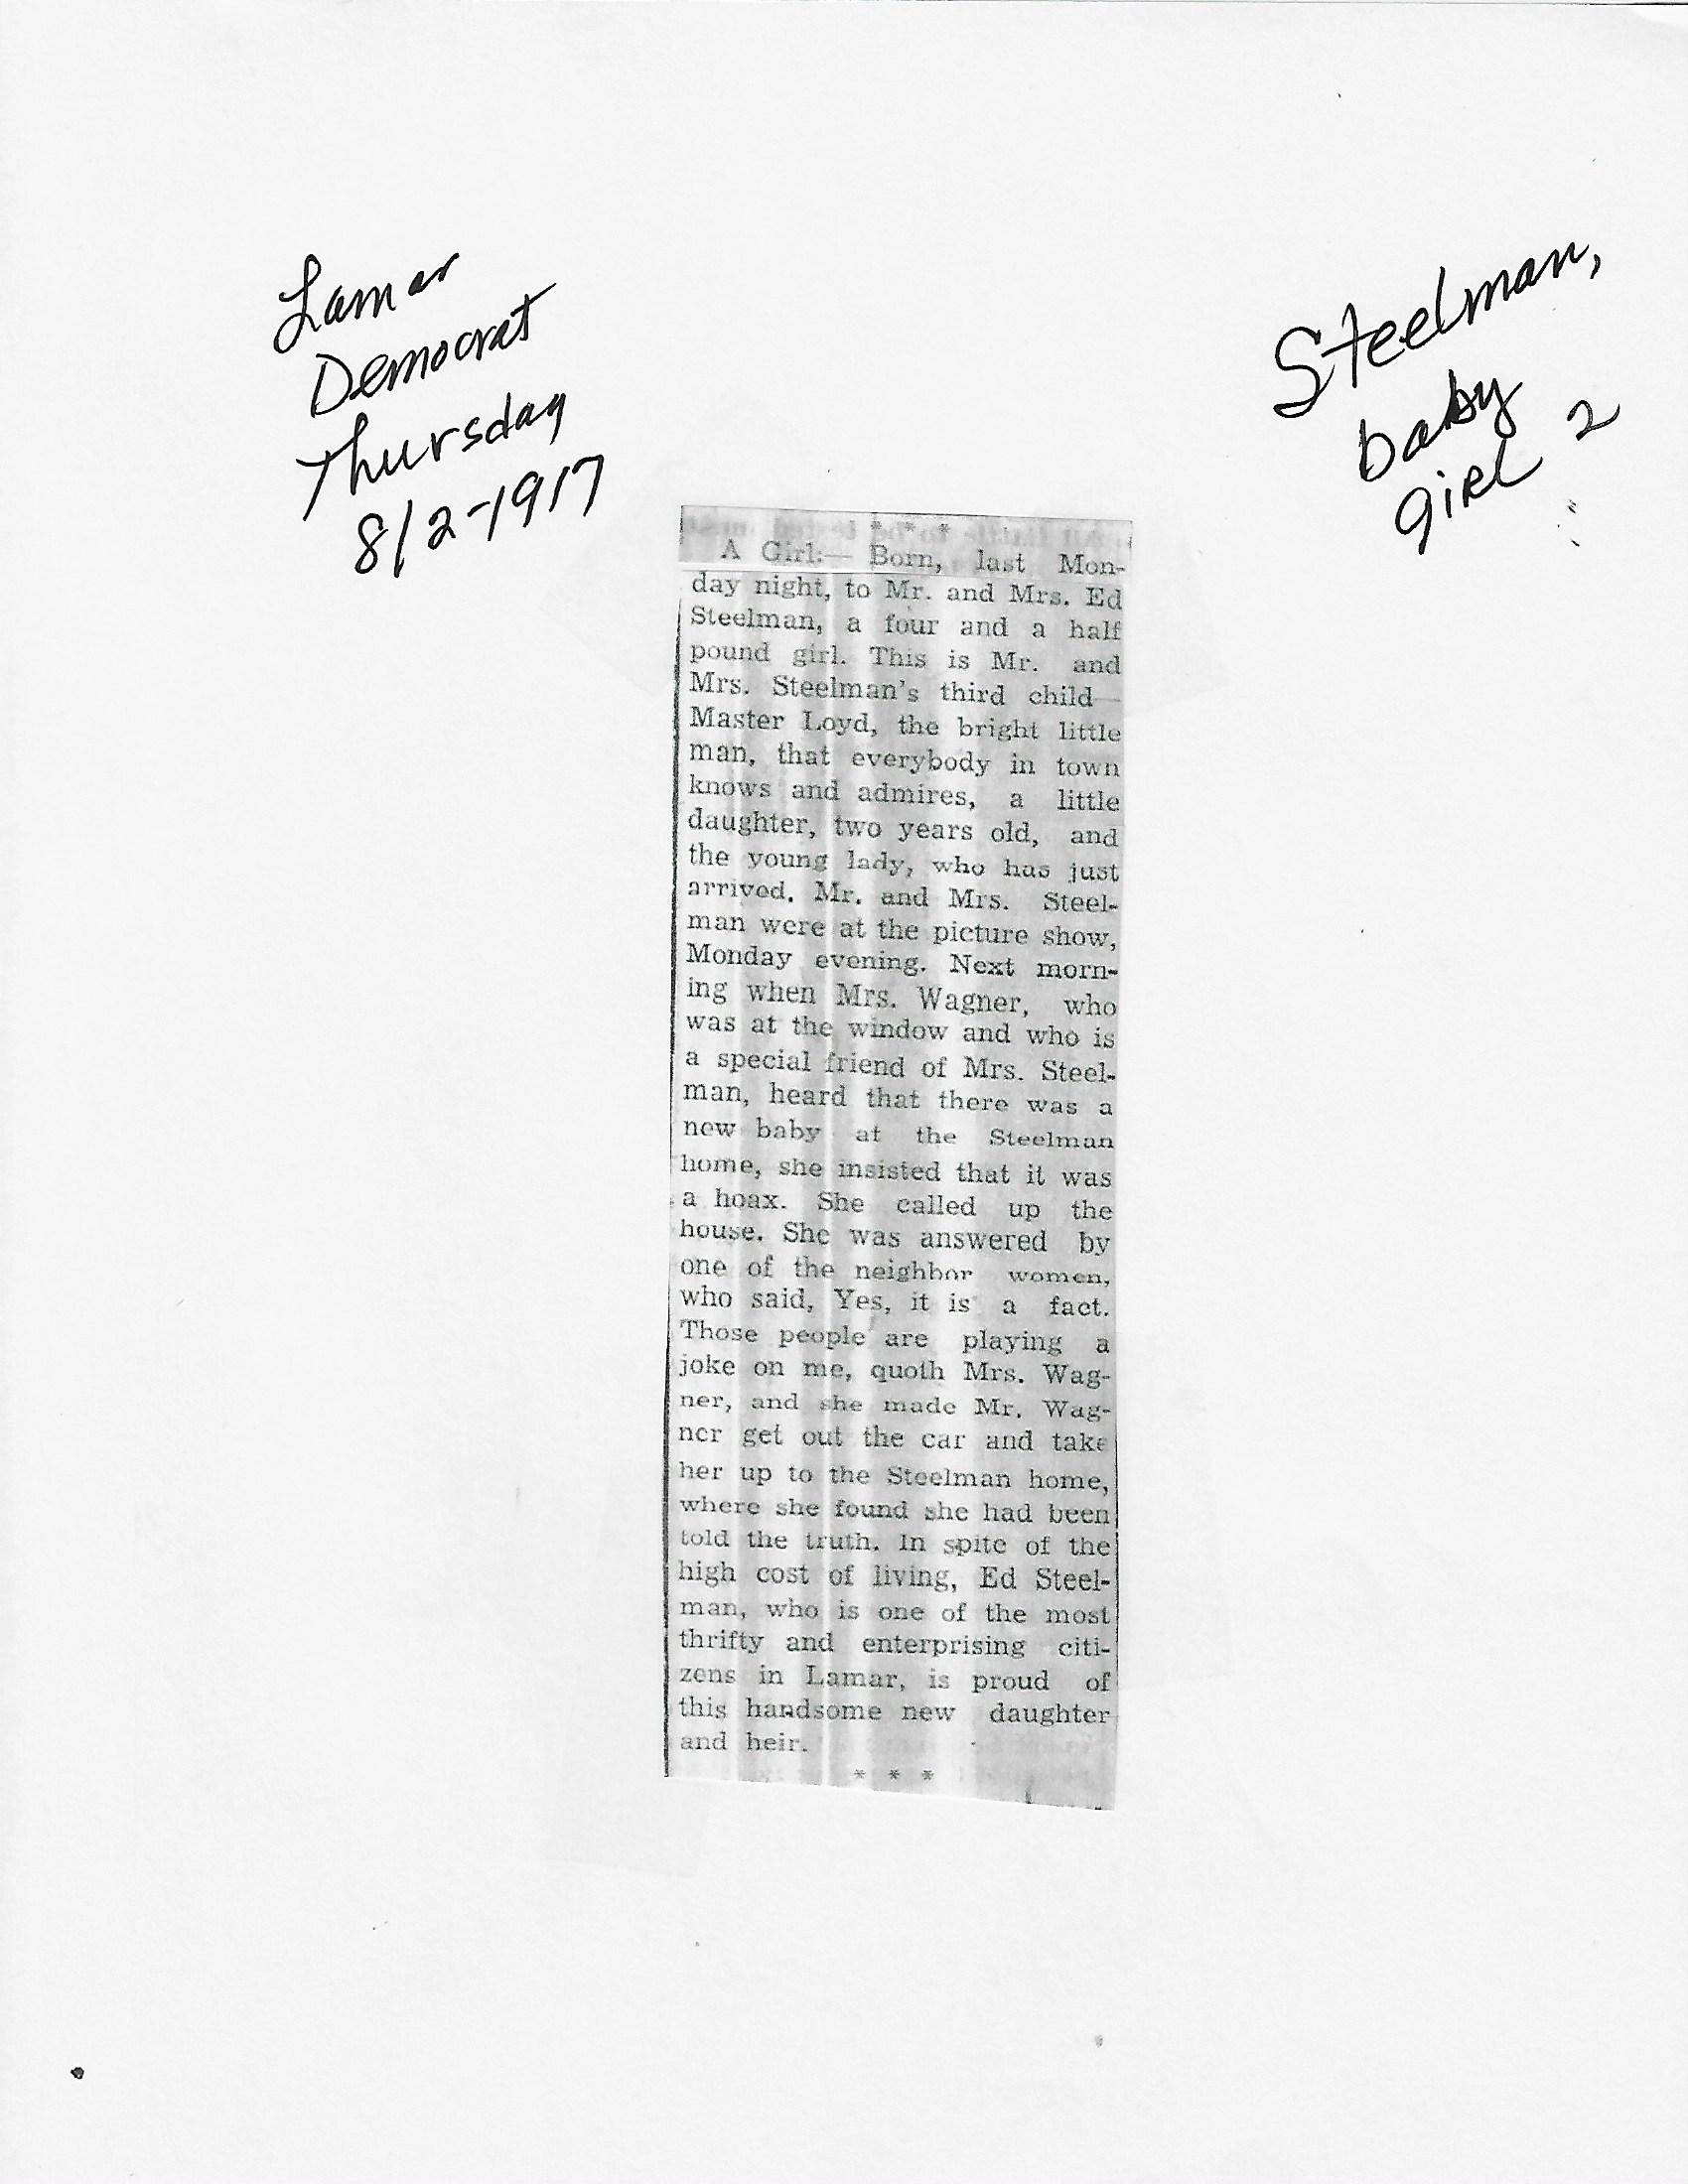 Lamar
Democrat
Thursday
8/2-1917
Steelman,
baby
girl 2
* * *
A Girl:— Born, last Mon-
day night, to Mr. and Mrs. Ed
Steelman, a four and a half
pound girl. This is Mr. and
Mrs. Steelman's third child—
Master Loyd, the bright little
man, that everybody in town
knows and admires, a little
daughter, two years old, and
the young lady, who has just
arrived. Mr. and Mrs. Steel-
man were at the picture show,
Monday evening. Next morn-
ing when Mrs. Wagner, who
was at the window and who is
a special friend of Mrs. Steel-
man, heard that there was a
new baby at the Steelman
home, she insisted that it was
a hoax. She called up the
house. She was answered by
one of the neighbor women,
who said, Yes, it is a fact.
Those people are playing a
joke on me, quoth Mrs. Wag-
ner, and she made Mr. Wag-
ner get out the car and take
her up to the Steelman home,
where she found she had been
told the truth. In spite of the
high cost of living, Ed Steel-
man, who is one of the most
thrifty and enterprising citi-
zens in Lamar, is proud of
this handsome new daughter
and heir.
* * *